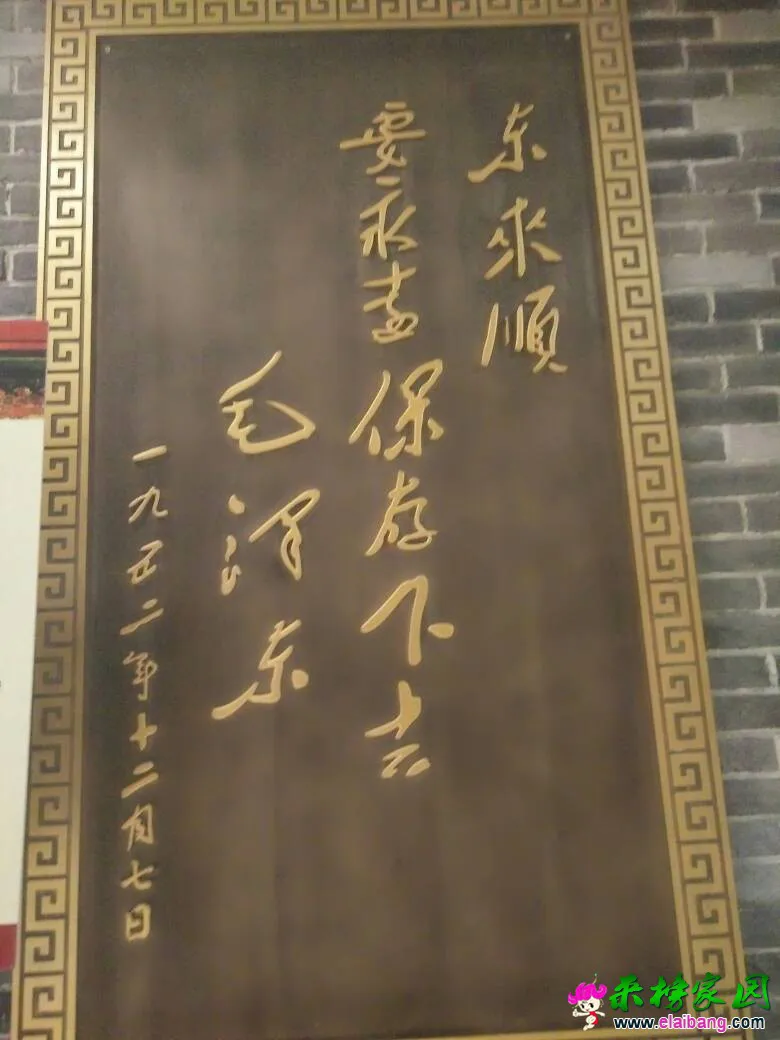 东來順
要永遠保存下去
毛泽东
一九五二年十二月七日
采榜家园
www.elaibang.com